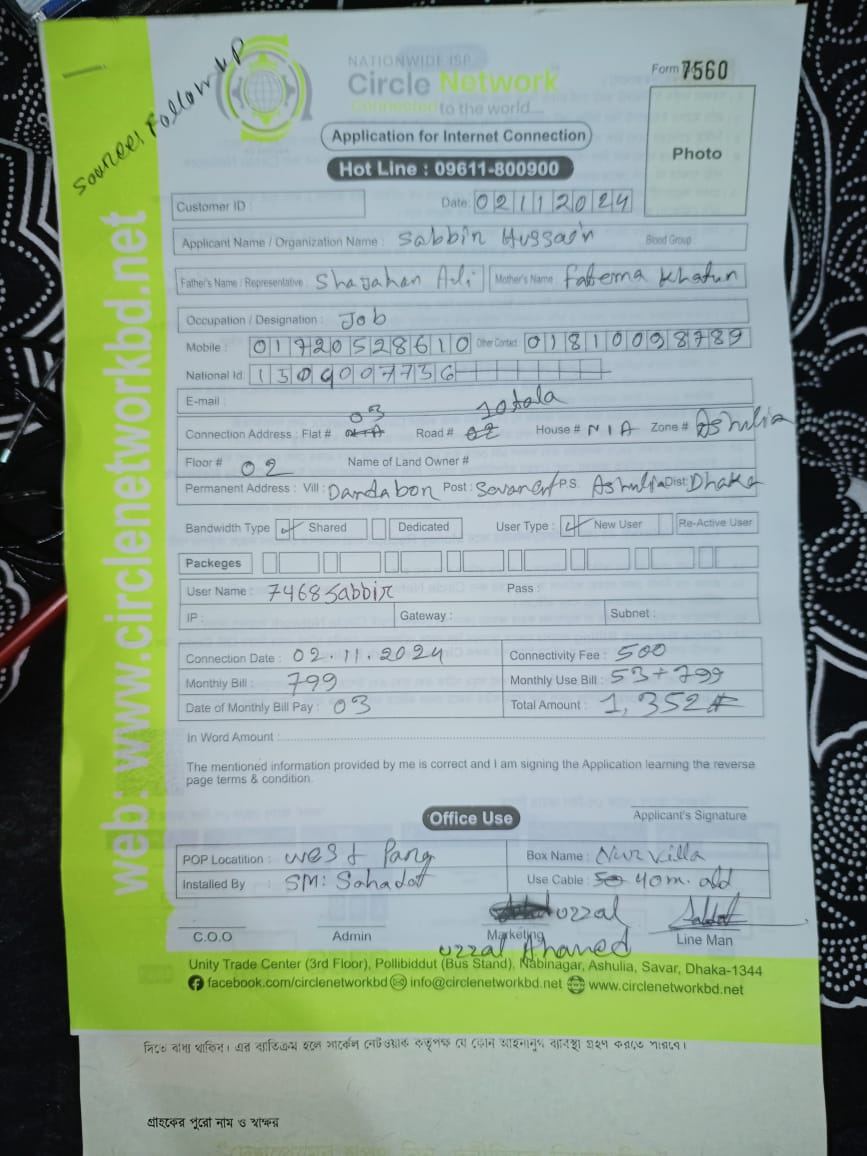 Source: Follow up
NATIONWIDE ISP
Circle Network
Connected to the world...
Form 7560
Application for Internet Connection
Hot Line : 09611-800900
Photo
web: www.circlenetworkbd.net
Customer ID :
Date: 02112024
Applicant Name / Organization Name : Sabbir Hussain Blood Group :
Father's Name / Representative : Shajahan Ali Mother's Name : Fatema Khatun
Occupation / Designation : Job
Mobile : 01720528610 Other Contact : 01810098789
National Id:
E-mail :
03 10tala
Connection Address : Flat # N/A Road # 02 House # N/A Zone # Ashulia
Floor # 02 Name of Land Owner #
Permanent Address : Vill : Dandabon Post : P.S. Ashulia Dist: Dhaka
Bandwidth Type Shared Dedicated User Type : New User Re-Active User
Packeges
User Name : 7468sabbir Pass :
IP : Gateway : Subnet :
Connection Date : 02.11.2024 Connectivity Fee : 500
Monthly Bill : 799 Monthly Use Bill : 53+799
Date of Monthly Bill Pay : 03 Total Amount : 1,352
In Word Amount :
The mentioned information provided by me is correct and I am signing the Application learning the reverse
page terms & condition.
Applicant's Signature
Office Use
POP Locatition : West Pang Box Name : Nur Villa
Installed By : SM: Sahadat Use Cable : 50 40m. old
uzzal
C.O.O Admin Marketing Line Man
uzzal Ahamed
Unity Trade Center (3rd Floor), Pollibiddut (Bus Stand), Nabinagar, Ashulia, Savar, Dhaka-1344
facebook.com/circlenetworkbd info@circlenetworkbd.net www.circlenetworkbd.net
দিতে বাধ্য থাকিব। এর ব্যতিক্রম হলে সার্কেল নেটওয়ার্ক কর্তৃপক্ষ যে কোন আইনানুগ ব্যবস্থা গ্রহণ করতে পারবে।
গ্রাহকের পুরো নাম ও স্বাক্ষর